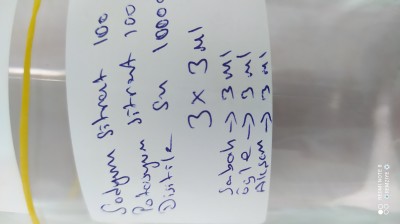 Sodyum Sitrat 100
Potasyum Sitrat 100
Distile Su 1000
3 x 3 ml
Sabah → 3 ml
öğle → 3 ml
Akşam → 3 ml